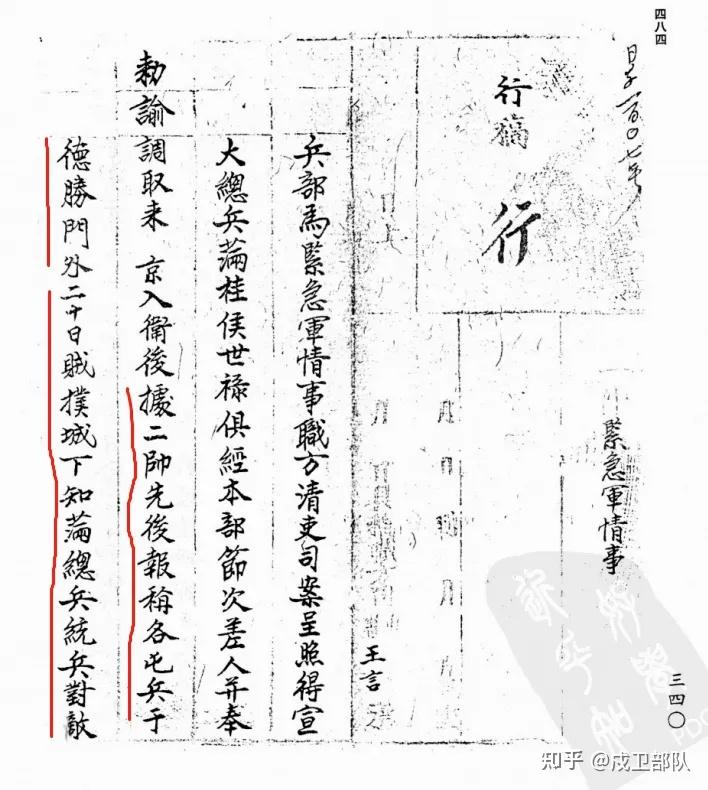 四八四
行稿
行
緊急軍情事
王言
兵部為緊急軍情事職方清吏司案呈照得宣
大總兵滿桂侯世祿俱經本部節次差人并奉
勅諭調取来 京入衛後據二帥先後報稱各屯兵于
德勝門外二十日賊撲城下知滿總兵統兵對敵
三四〇
知乎 @戍卫部队